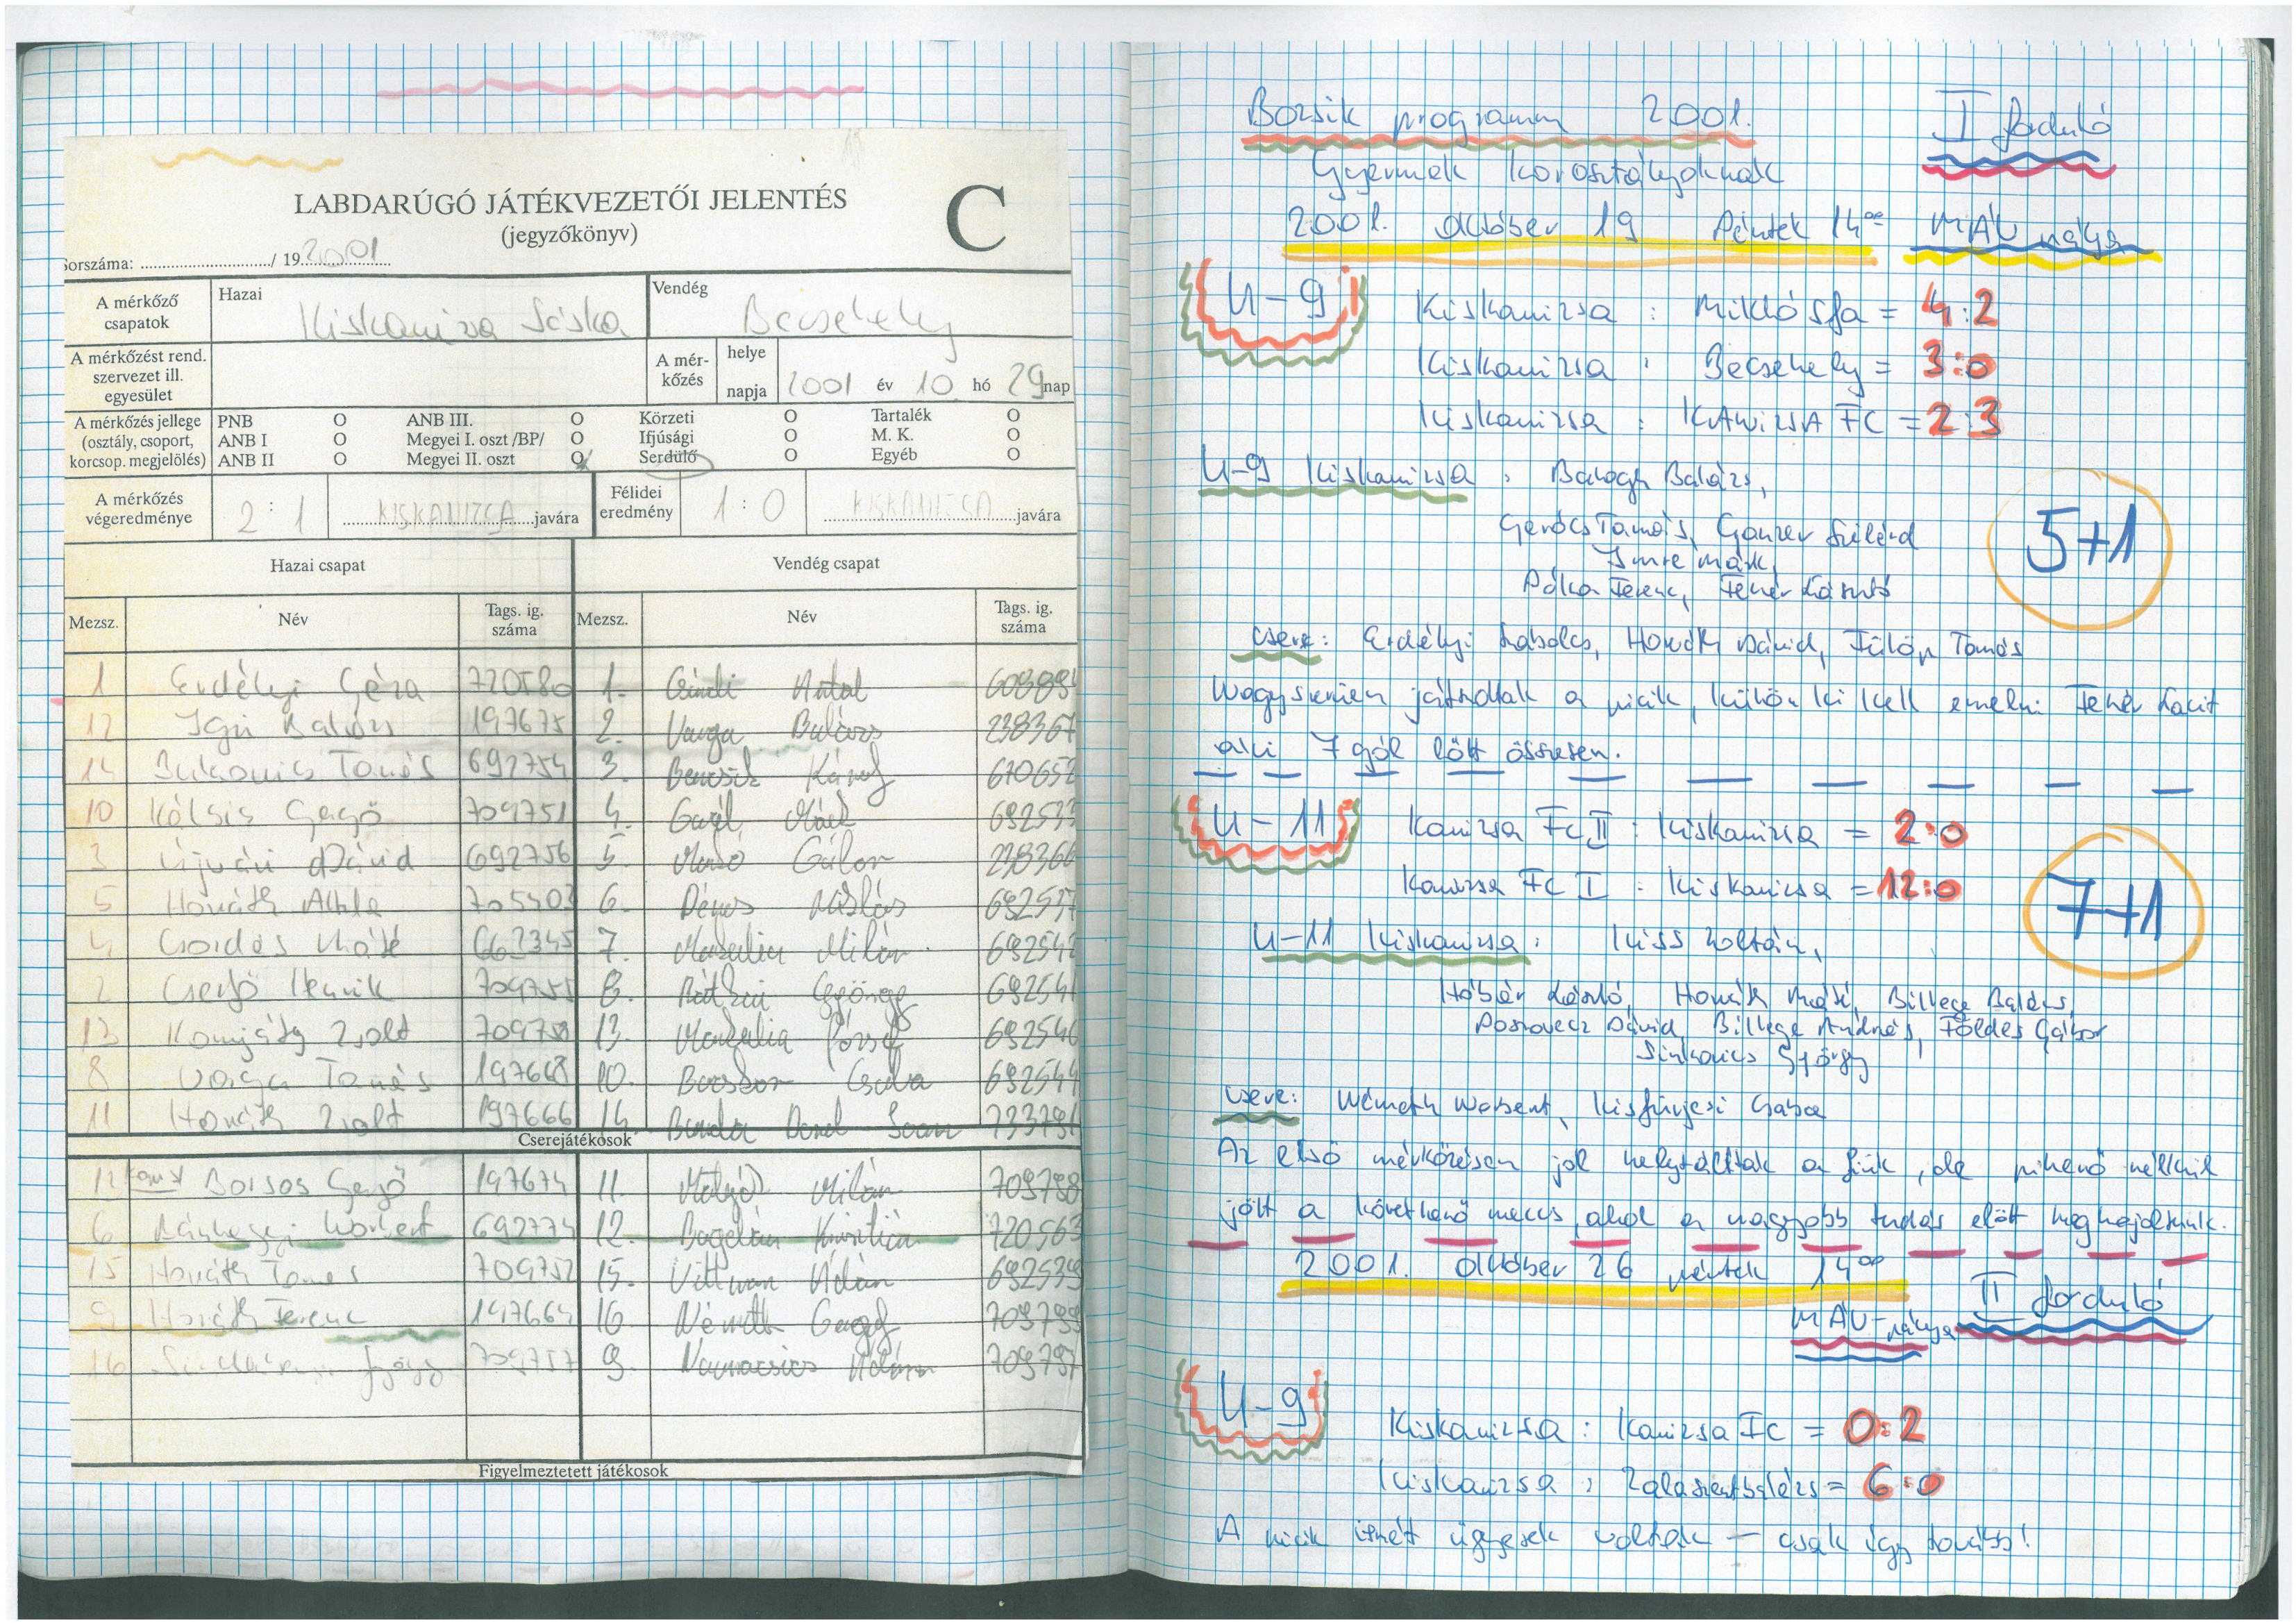 LABDARÚGÓ JÁTÉKVEZETŐI JELENTÉS
(jegyzőkönyv)
C
Sorszáma: ............/ 19 2001
A mérkőző csapatok
Hazai
Kiskanizsa Sáska
Vendég
Becsehely
A mérkőzést rend. szervezet ill. egyesület
A mérkőzés
helye
napja 2001 év 10 hó 29 nap
A mérkőzés jellege (osztály, csoport, korcsop. megjelölés)
PNB O ANB III. O Körzeti O Tartalék O
ANB I O Megyei I. oszt /BP/ O Ifjúsági O M. K. O
ANB II O Megyei II. oszt O Serdülő O Egyéb O
A mérkőzés végeredménye
2 : 1 KISKANIZSA javára
Félidei eredmény
1 : 0 KISKANIZSA javára
Hazai csapat Vendég csapat
Mezsz. Név Tags. ig. száma Mezsz. Név Tags. ig. száma
1 Erdélyi Géza 720580 1. Antal
12 Igri Balázs 197675 2. Varga Balázs 238367
14 Tamás 692754 3. Bencsik Károly 670652
10 Kálcsis Gergő 709751 4. Gaál Márk 692533
3 Újvári Dávid 692756 5. Gábor 238366
5 Horváth Attila 705403 6. Dénes Miklós 692537
4 Csordás Máté 662345 7. Milán 692542
2 Cserjő Henrik 709755 8. György 692541
13 Komjáty Zsolt 709750 13. József 692546
8 Varga Tamás 197668 10. Bocskor Csaba 692544
11 Horváth Zsolt 197666 14. 733791
Cserejátékosok
12 kapus Borsos Gergő 197674 11. Milán 709798
6 Norbert 692774 12. Bogdán Krisztián 720563
15 Horváth Tamás 709752 15. Vittman Ádám 692539
9 Horváth Ferenc 197664 16. Németh Gergő 709799
16 György 709757 9. Ádám 709797
Figyelmeztetett játékosok
Bozsik programm 2001. I forduló
Gyermek korosztályoknak
2001. október 19 Péntek 14°° MÁV pálya
U-9 Kiskanizsa : Miklósfa = 4:2
Kiskanizsa : Becsehely = 3:0
Kiskanizsa : KANIZSA FC = 2:3
U-9 Kiskanizsa : Balogh Balázs,
Gerócs Tamás, Ganzer Szilárd
5+1
Imre Márk,
Pólka Ferenc, Fehér László
csere: Erdélyi Szabolcs, Horváth Dávid, Fülöp Tamás
Nagyszerűen játszottak a picik, külön ki kell emelni Fehér Lacit
aki 7 gól lőtt összesen.
U-11 Kanizsa FC II : Kiskanizsa = 2:0
Kanizsa FC I : Kiskanizsa = 12:0
7+1
U-11 Kiskanizsa : Kiss Zoltán,
Hóbár László, Horváth Máté, Billege Balázs,
Dávid, Billege András, Földes Gábor
Sinkovics György
csere: Németh Norbert, Kisfürjesi Csaba
Az első mérkőzésen jól helytálltak a fiúk, de pihenő nélkül
jött a következő meccs, ahol a nagyobb tudás előtt meghajoltunk.
2001. október 26 péntek 14°°
II forduló
MÁV-pálya
U-9 Kiskanizsa : Kanizsa FC = 0:2
Kiskanizsa : Zalaszentbalázs = 6:0
A picik ismét ügyesek voltak – csak így tovább!